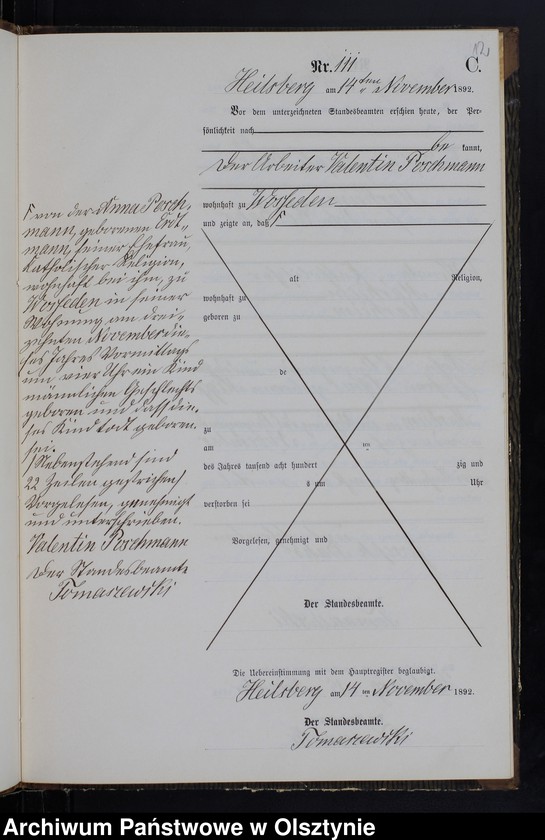 121
Nr. 111
C.
Heilsberg am 14ten November 1892.
Vor dem unterzeichneten Standesbeamten erschien heute, der Per-
sönlichkeit nach
be kannt,
der Arbeiter Valentin Poschmann
wohnhaft zu Wosseden
und zeigte an, daß Γ
alt Religion,
wohnhaft zu
geboren zu
de
zu
am ten
des Jahres tausend acht hundert zig und
s um Uhr
verstorben sei
Vorgelesen, genehmigt und
Der Standesbeamte.
Γ von der Anna Posch-
mann, geborenen Erdt-
mann, seiner Ehefrau,
katholischer Religion,
wohnhaft bei ihm, zu
Wosseden in seiner
Wohnung am drei-
zehnten November die-
ses Jahres Vormittags
um vier Uhr ein Kind
männlichen Geschlechts
geboren und dass die-
ses Kind todt geboren
sei.
Nebenstehend sind
22 Zeilen gestrichen
Vorgelesen, genehmigt
und unterschrieben.
Valentin Poschmann
Der Standesbeamte
Tomaszewski
Die Uebereinstimmung mit dem Hauptregister beglaubigt.
Heilsberg am 14ten November 1892.
Der Standesbeamte.
Tomaszewski
Archiwum Państwowe w Olsztynie